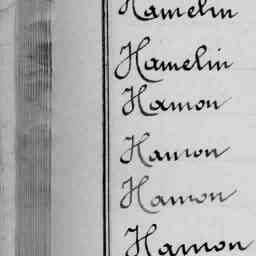 Hamelin
Hamelin
Hamon
Hamon
Hamon
Hamon